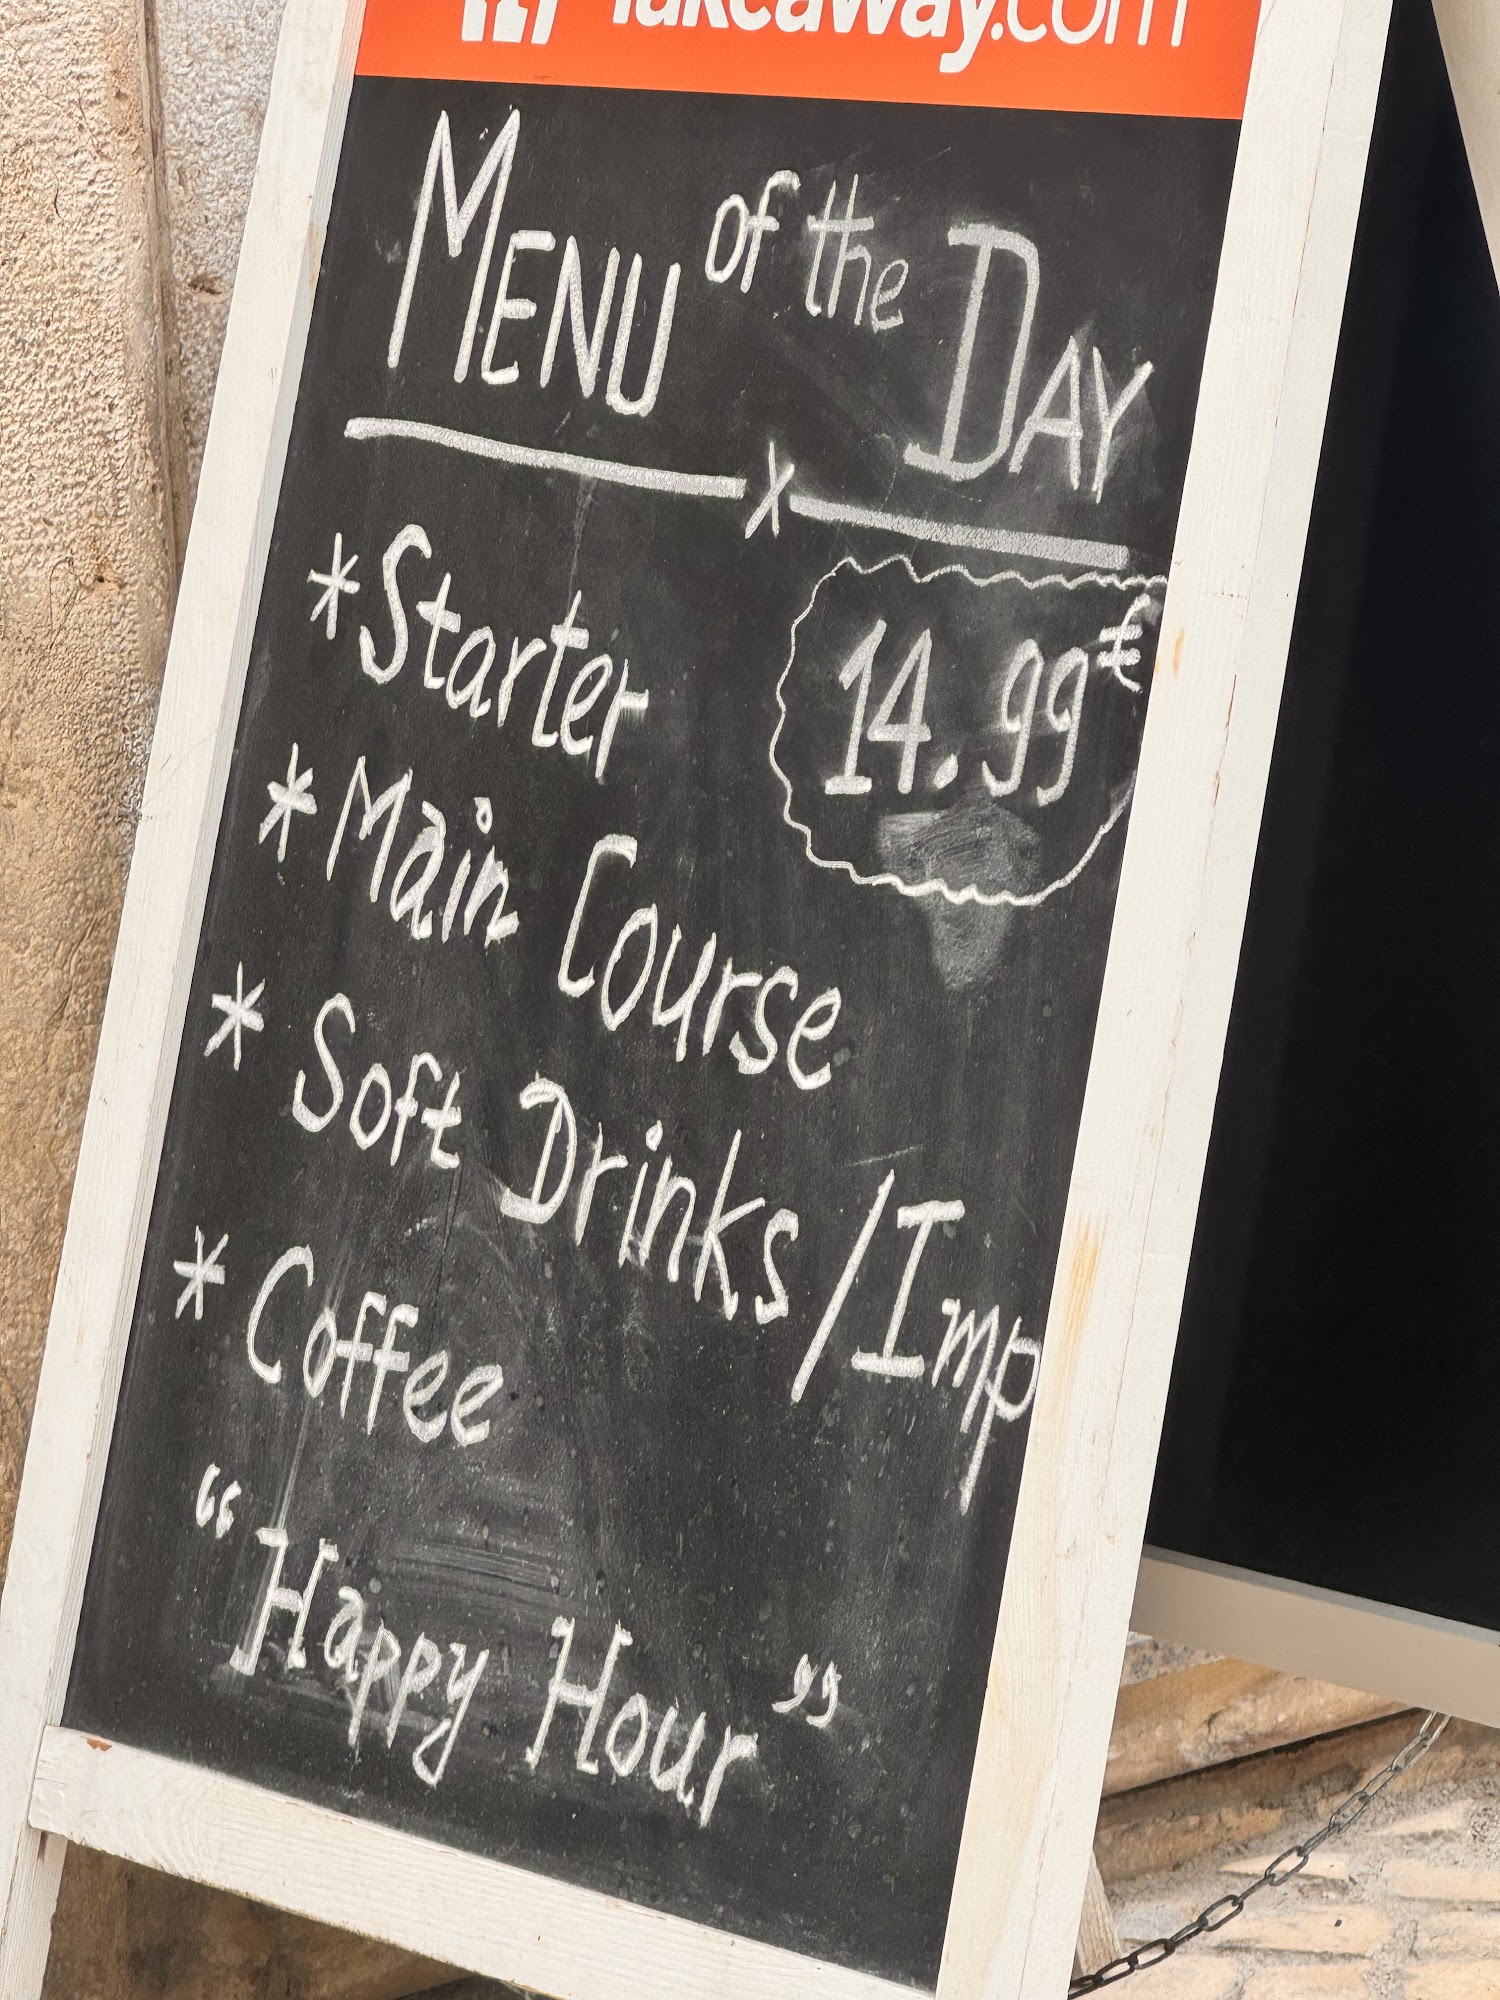 Takeaway.com
MENU of the DAY
x
* Starter
14.99€
* Main Course
* Soft Drinks / Imp
* Coffee
“Happy Hour”